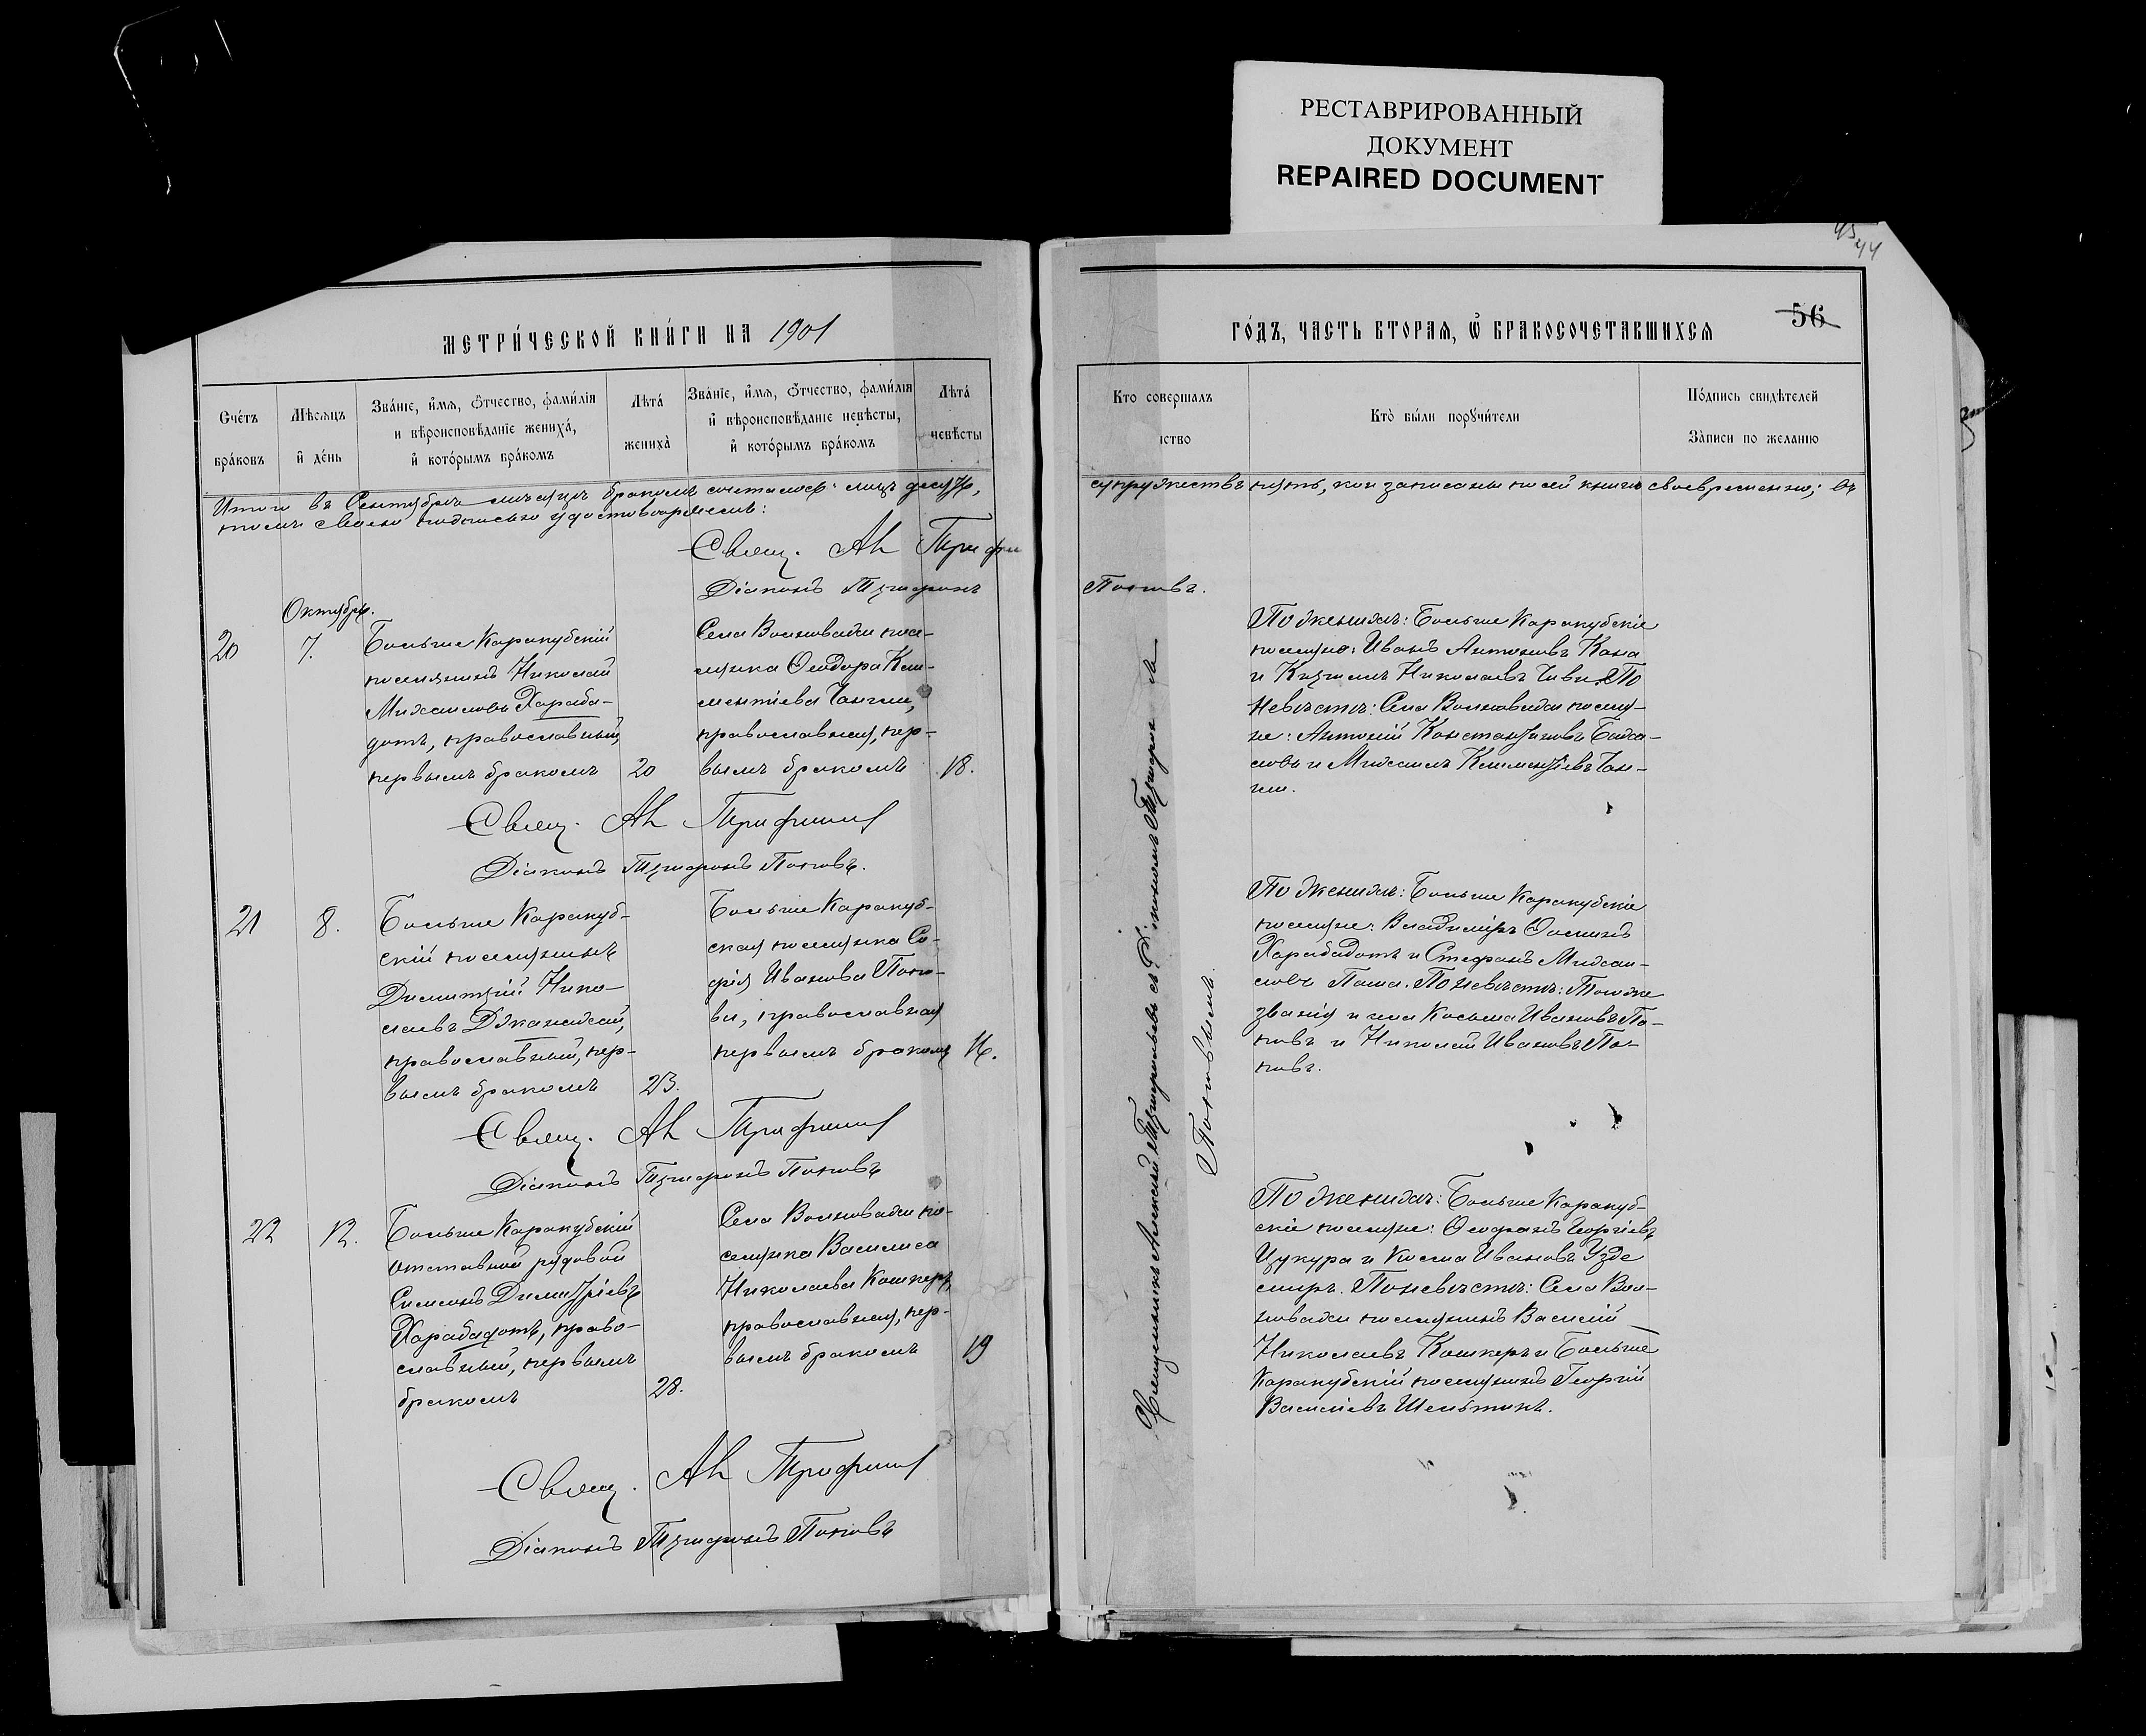 РЕСТАВРИРОВАННЫЙ
ДОКУМЕНТ
REPAIRED DOCUMENT
44
56
МЕТРИ́ЧЕСКОЙ КНИ́ГИ НА 1901
ГО́ДЪ, ЧАСТЬ ВТОРАѦ, Ѡ҆ БРАКОСОЧЕТАВШИХСѦ
Счéтъ
брáковъ
Мѣсѧцъ
и҆ дéнь
Звáнїе, и҆́мѧ, ѻ҆́тчество, фами́лїѧ
и вѣроисповѣ́данїе женихá,
и҆ котóрымъ брáкомъ
Лѣтá
женихà
Звáнїе, и҆́мѧ, ѻ҆́тчество, фами́лїѧ
и҆ вѣроисповѣ́данїе невѣ́сты,
и҆ котóрымъ брáкомъ
Лѣтá
невѣ́сты
Кто совершалъ
Ктò бы́ли порꙋчи́тели
Пóдпись свидѣ́телей
Зàписи по желанїю
Итого въ Сентябрѣ мѣсяцѣ бракомъ сочеталось лицъ десять,
супружествъ пять, кои записаны по сей книгѣ своевременно; въ
чемъ своею подписью удостовѣряемъ:
Свящ. Ал Трифи
Діаконъ Трифонъ
Поповъ.
Октябрь.
20
7.
Больше Каракубскій
поселянинъ Николай
Михаиловъ Хараба-
дотъ, православный,
первымъ бракомъ
20
Села Волновахи посе-
лянка Ѳеодора Кли-
ментіева Чангли,
православная, пер-
вымъ бракомъ
18.
По женихѣ: Больше Каракубскіе
поселяне: Иванъ Антоновъ Капа
и Николаевъ По
невѣстѣ: Села Волновахи поселя-
не: Антоній Константиновъ Байса-
ловъ и Михаилъ Климентіевъ Чан-
гли.
Свящ. Ал Трифил
Діаконъ Трифонъ Поповъ.
21
8.
Больше Каракуб-
скій поселянинъ
Димитрій Нико-
лаевъ Джанихай,
православный, пер-
вымъ бракомъ
23.
Больше Каракуб-
ская поселянка Со-
фія Иванова Попо-
ва, православная
первымъ бракомъ
16.
По женихѣ: Больше Каракубскіе
поселяне: Владиміръ Ѳоминъ
Харабадотъ и Стефанъ Михаи-
ловъ Паша. По невѣстѣ: Того же
званія и села Косьма Ивановъ По-
повъ и Николай Ивановъ По-
повъ.
Свящ. Ал Трифил
Діаконъ Трифонъ Поповъ
22
12.
Больше Каракубскій
отставной рядовой
Симеонъ Димитріевъ
Харабадотъ, право-
славный, первымъ
бракомъ
28.
Села Волновахи по-
селянка Василиса
Николаева Кошкеръ,
православная, пер-
вымъ бракомъ
19
По женихѣ: Больше Каракуб-
скіе поселяне: Ѳеофанъ Георгіевъ
Цукура и Косма Ивановъ Узде
миръ. По невѣстѣ: Села Вол-
новахи поселянинъ Василій
Николаевъ Кошкеръ и Больше
Каракубскій поселянинъ Георгій
Василіевъ Шельтикъ.
Свящ. Ал Трифил
Діаконъ Трифонъ Поповъ
Священникъ Алексій съ Діакономъ
Поповымъ.